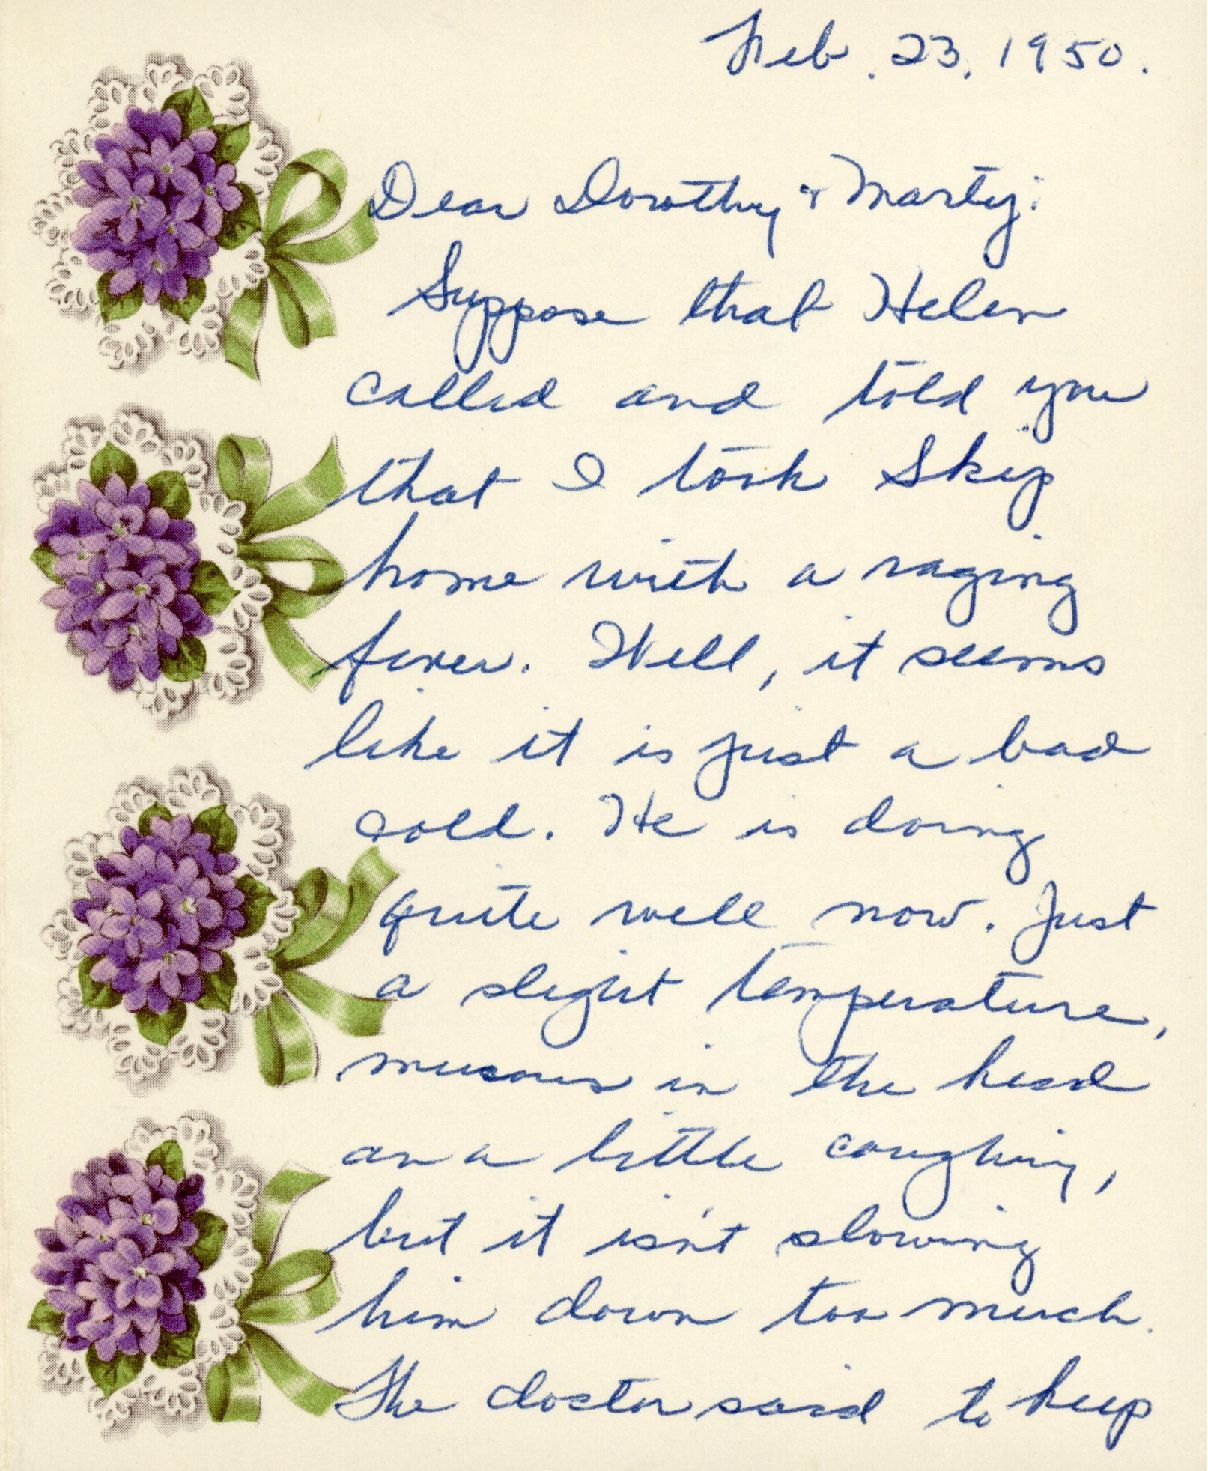 Feb. 23, 1950.
Dear Dorothy & Marty:
Suppose that Helen
called and told you
that I took Skip
home with a raging
fever. Well, it seems
like it is just a bad
cold. He is doing
quite well now. Just
a slight temperature,
mucous in the head
an a little coughing,
but it isn't slowing
him down too much.
The doctor said to keep